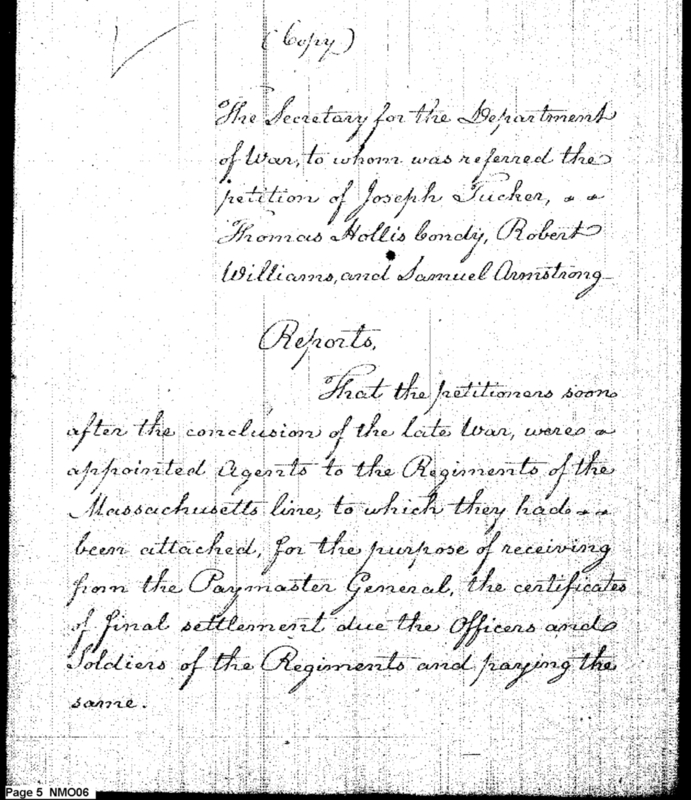 (Copy)
The Secretary for the Department
of War, to whom was referred the
petition of Joseph Tucker,
Thomas Hollis Condy, Robert
Williams, and Samuel Armstrong
Reports,
That the petitioners soon
after the conclusion of the late War, were
appointed Agents to the Regiments of the
Massachusetts line, to which they had
been attached, for the purpose of receiving
from the Paymaster General, the certificates
of final settlement due the Officers and
Soldiers of the Regiments and paying the
same.
Page 5 NMO06